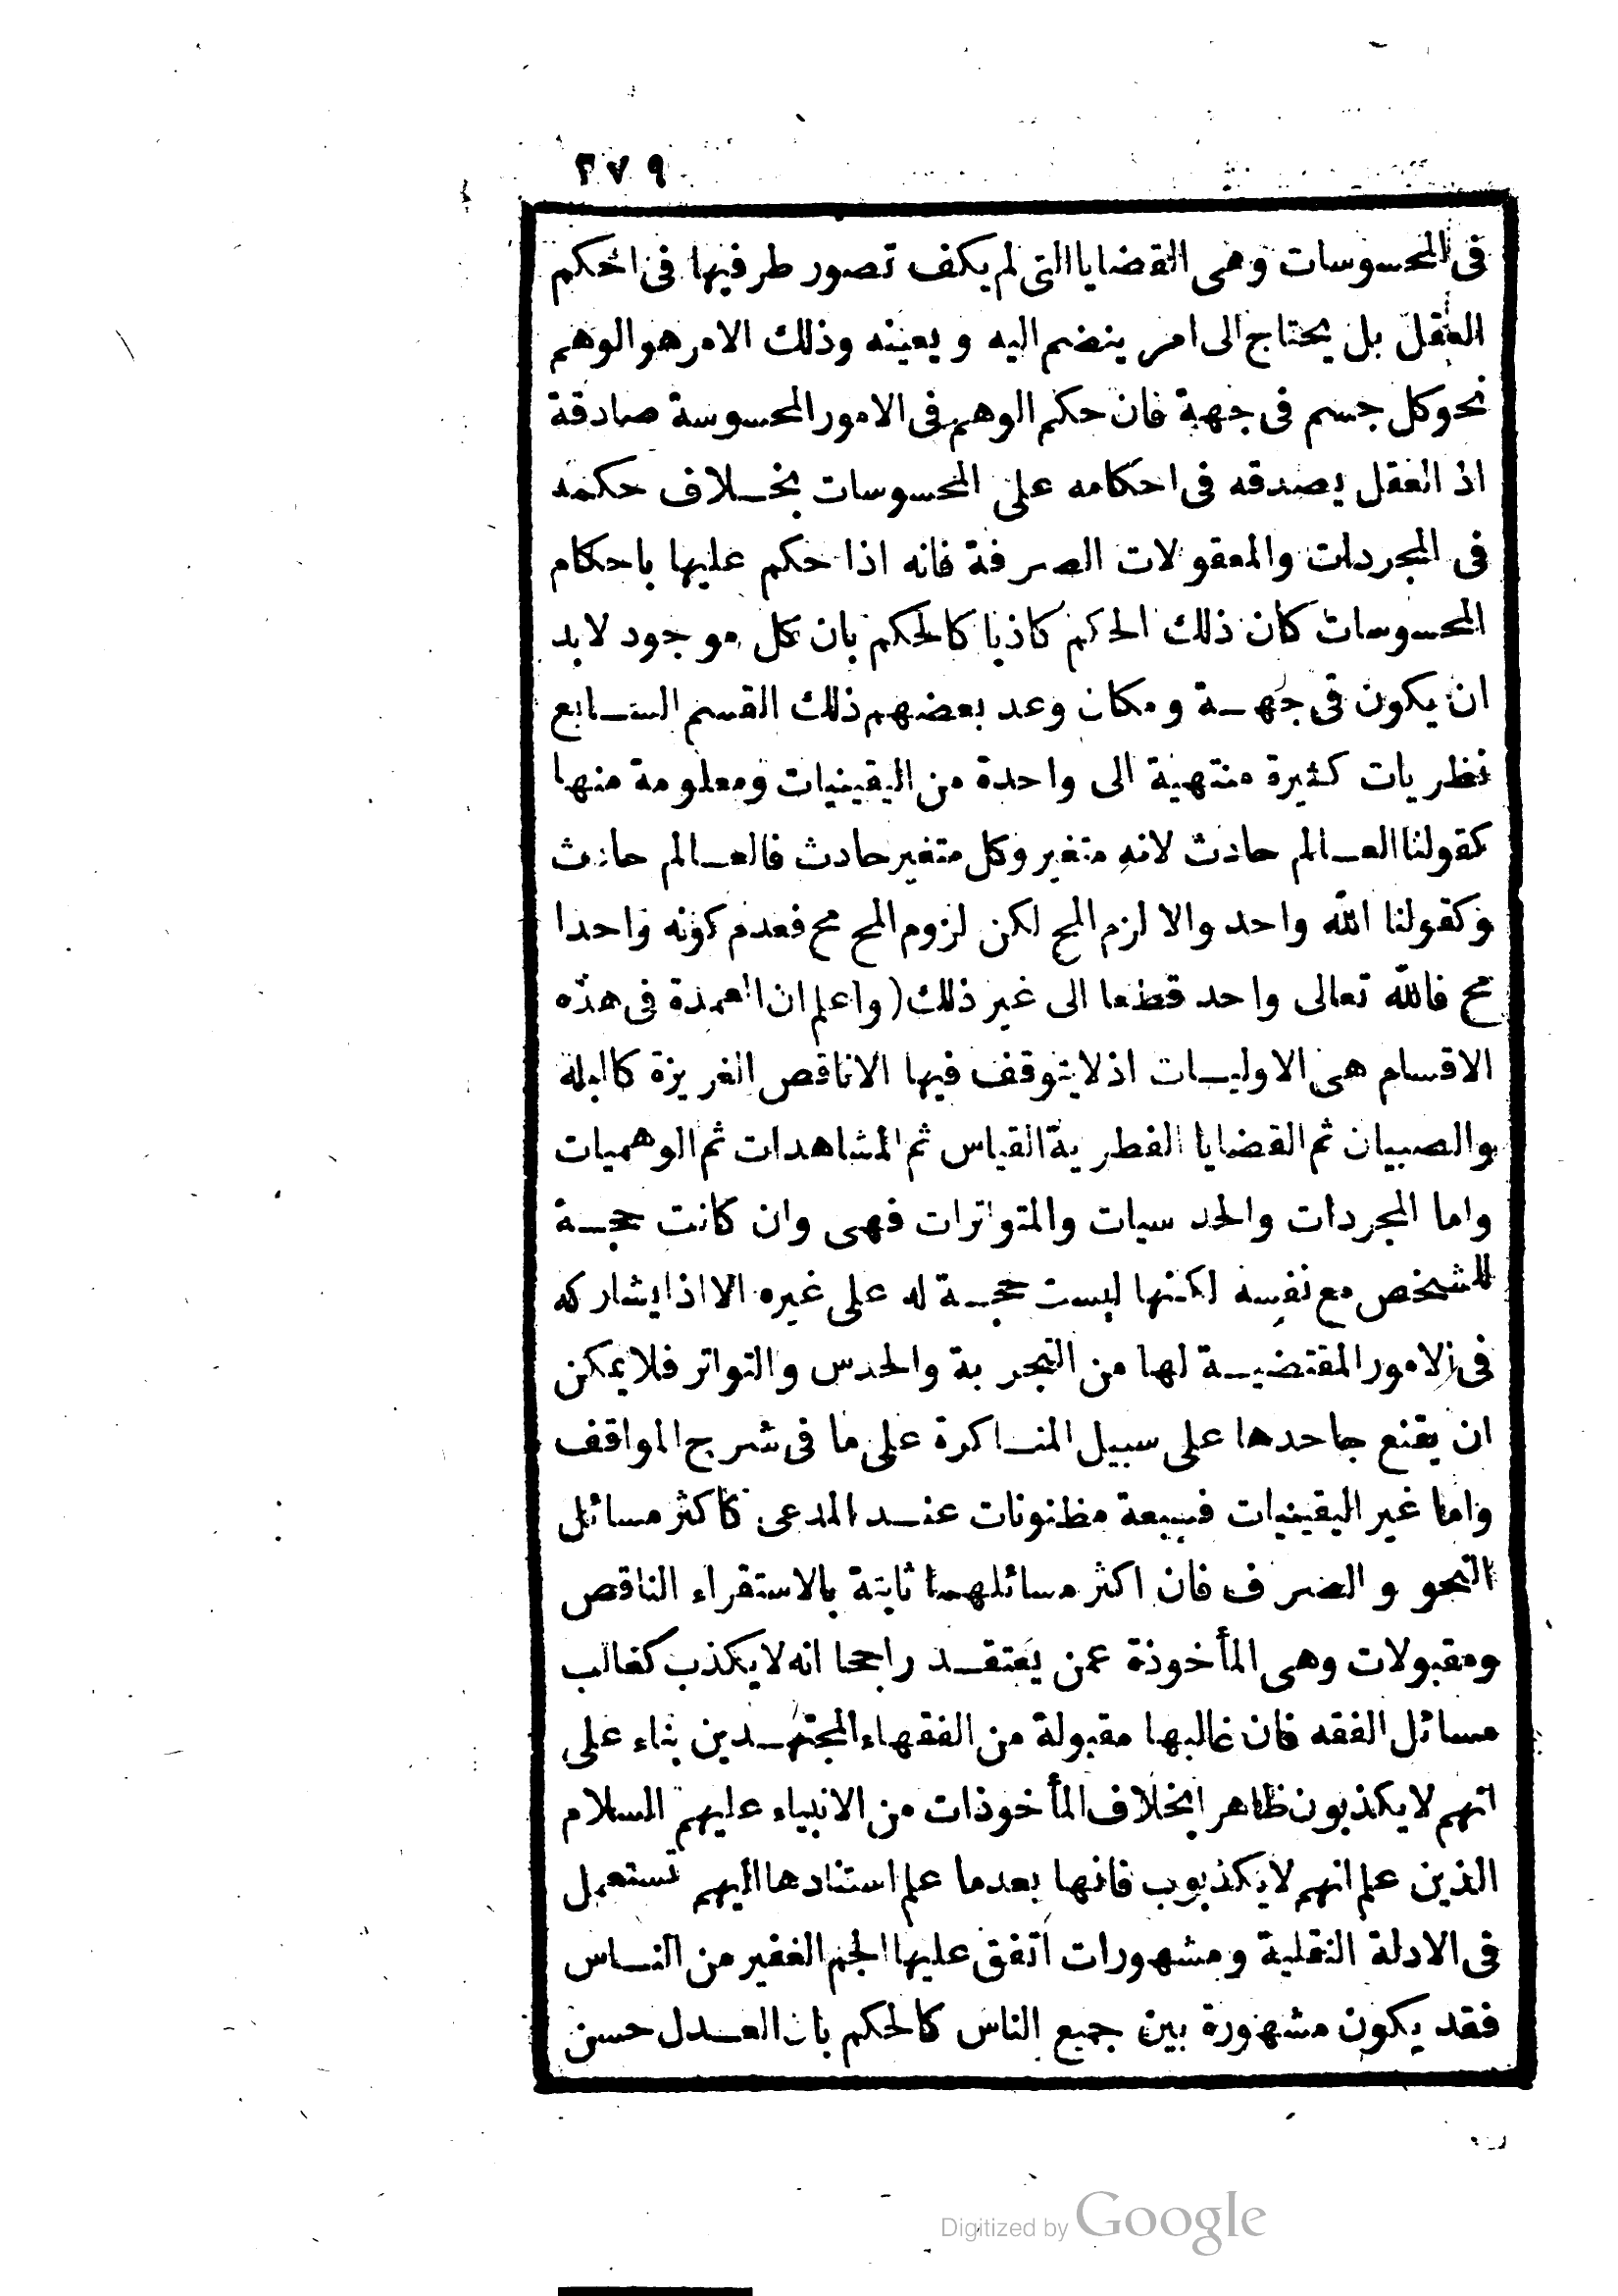 ٢٧٩
فى المحسوسات وهى القضايا التى لم يكف تصور طرفيها فى احكم
العقل بل يحتاج الى امر ينضم اليه ويعينه وذلك الامر هو الوهم
نحو كل جسم فى جهة فان حكم الوهم فى الامور المحسوسة صادقة
اذ العقل يصدقه فى احكامه على المحسوسات بخلاف حكمه
فى المجردات والمعقولات الصرفة فانه اذا حكم عليها باحكام
المحسوسات كان ذلك الحكم كاذبا كالحكم بان كل موجود لابد
ان يكون فى جهة ومكان وعد بعضهم ذلك القسم السابع
نظريات كثيرة منتهية الى واحدة من اليقينيات ومعلومة منها
كقولنا العالم حادث لانه متغير وكل متغير حادث فالعالم حادث
وكقولنا الله واحد والا لزم المح لكن لزوم المح مح فعدم كونه واحدا
مح فالله تعالى واحد قطعا الى غير ذلك (واعلم ان العمدة فى هذه
الاقسام هى الاوليات اذ لايتوقف فيها الا ناقص الغريزة كالبله
والصبيان ثم القضايا الفطرية القياس ثم المشاهدات ثم الوهميات
واما المجردات والحدسيات والمتواترات فهى وان كانت حجة
للشخص مع نفسه لكنها ليست حجة له على غيره الا اذا يشاركه
فى الامور المقتضية لها من التجربة والحدس والتواتر فلا يمكن
ان يقنع جاحدها على سبيل المناكرة على ما فى شرح المواقف
واما غير اليقينيات فسبعة مظنونات عند المدعى كاكثر مسائل
النحو والصرف فان اكثر مسائلهما ثابتة بالاستقراء الناقص
ومقبولات وهى المأخوذة عمن يعتقد راجحا انه لا يكذب كغالب
مسائل الفقه فان غالبها مقبولة من الفقهاء المجتهدين بناء على
انهم لا يكذبون ظاهرا بخلاف المأخوذات من الانبياء عليهم السلام
الذين علم انهم لا يكذبون فانها بعدما علم استنادها اليهم تستعمل
فى الادلة النقلية ومشهورات اتفق عليها الجم الغفير من الناس
فقد يكون مشهورة بين جميع الناس كالحكم بان العدل حسن
Digitized by Google